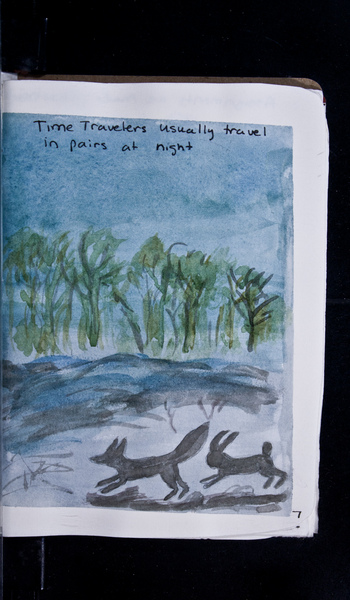 Time Travelers usually travel
in pairs at night
7